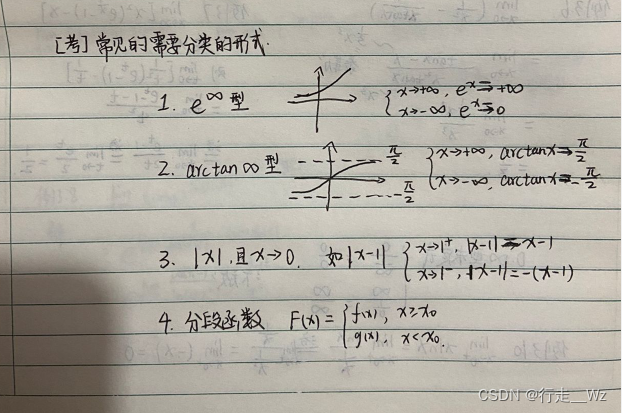 [考] 常见的需要分类的形式.
1. e^∞ 型 { x→+∞, e^x→+∞
x→-∞, e^x→0
2. arctan∞ 型 π/2 { x→+∞, arctanx→π/2
-π/2 x→-∞, arctanx→-π/2
3. |x|, 且x→0. 如|x-1| { x→1⁺, |x-1|=x-1
x→1⁻, |x-1|=-(x-1)
4. 分段函数 F(x)= { f(x), x≥x₀
g(x), x<x₀.
CSDN @行走__Wz